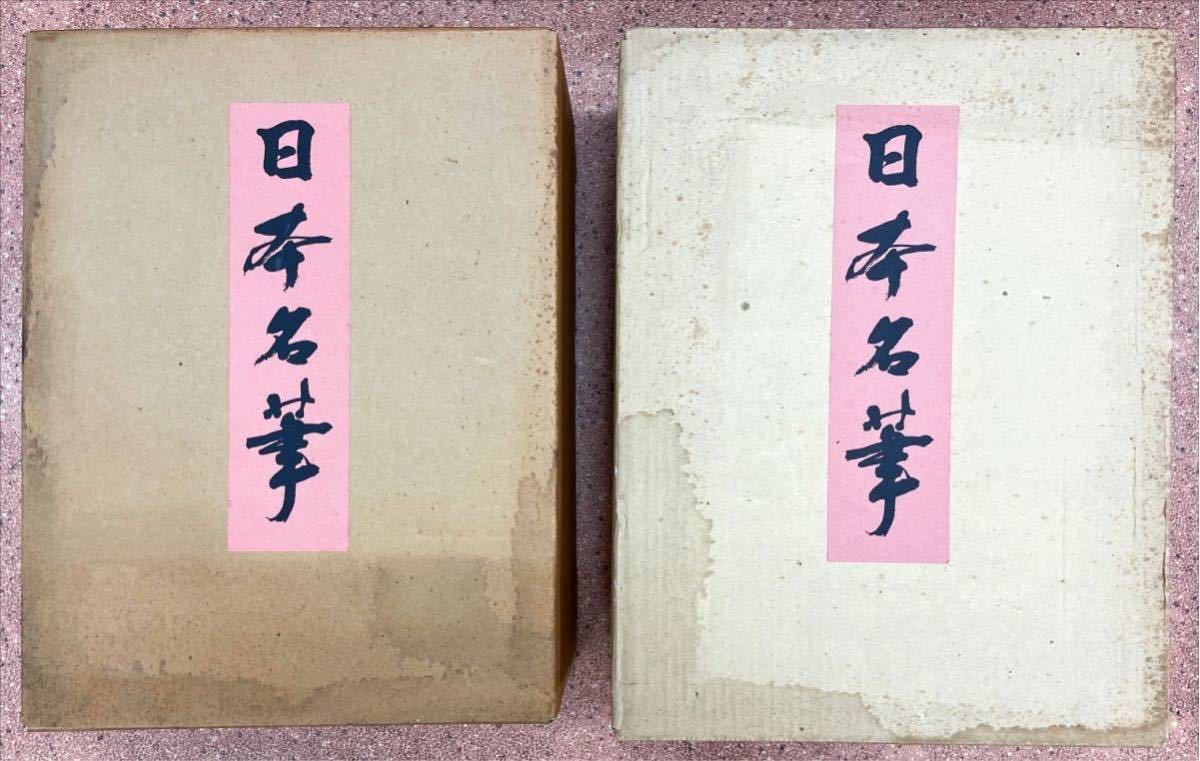 日本名筆
日本名筆